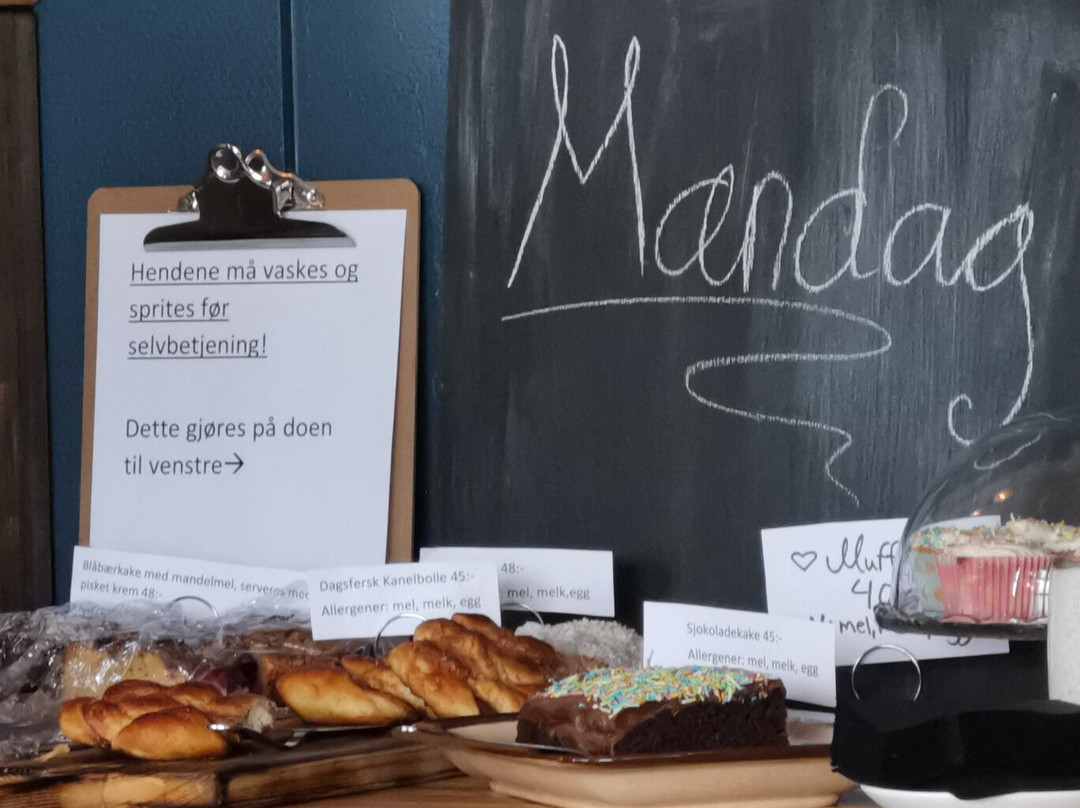 Hendene må vaskes og
sprites før
selvbetjening!
Dette gjøres på doen
til venstre→
Mandag
Blåbærkake med mandelmel, serveres med
pisket krem 48:-
Dagsfersk Kanelbolle 45:-
Allergener: mel, melk, egg
48:-
mel, melk,egg
Sjokoladekake 45:-
Allergener: mel, melk, egg
♡ Muff
40
mel,